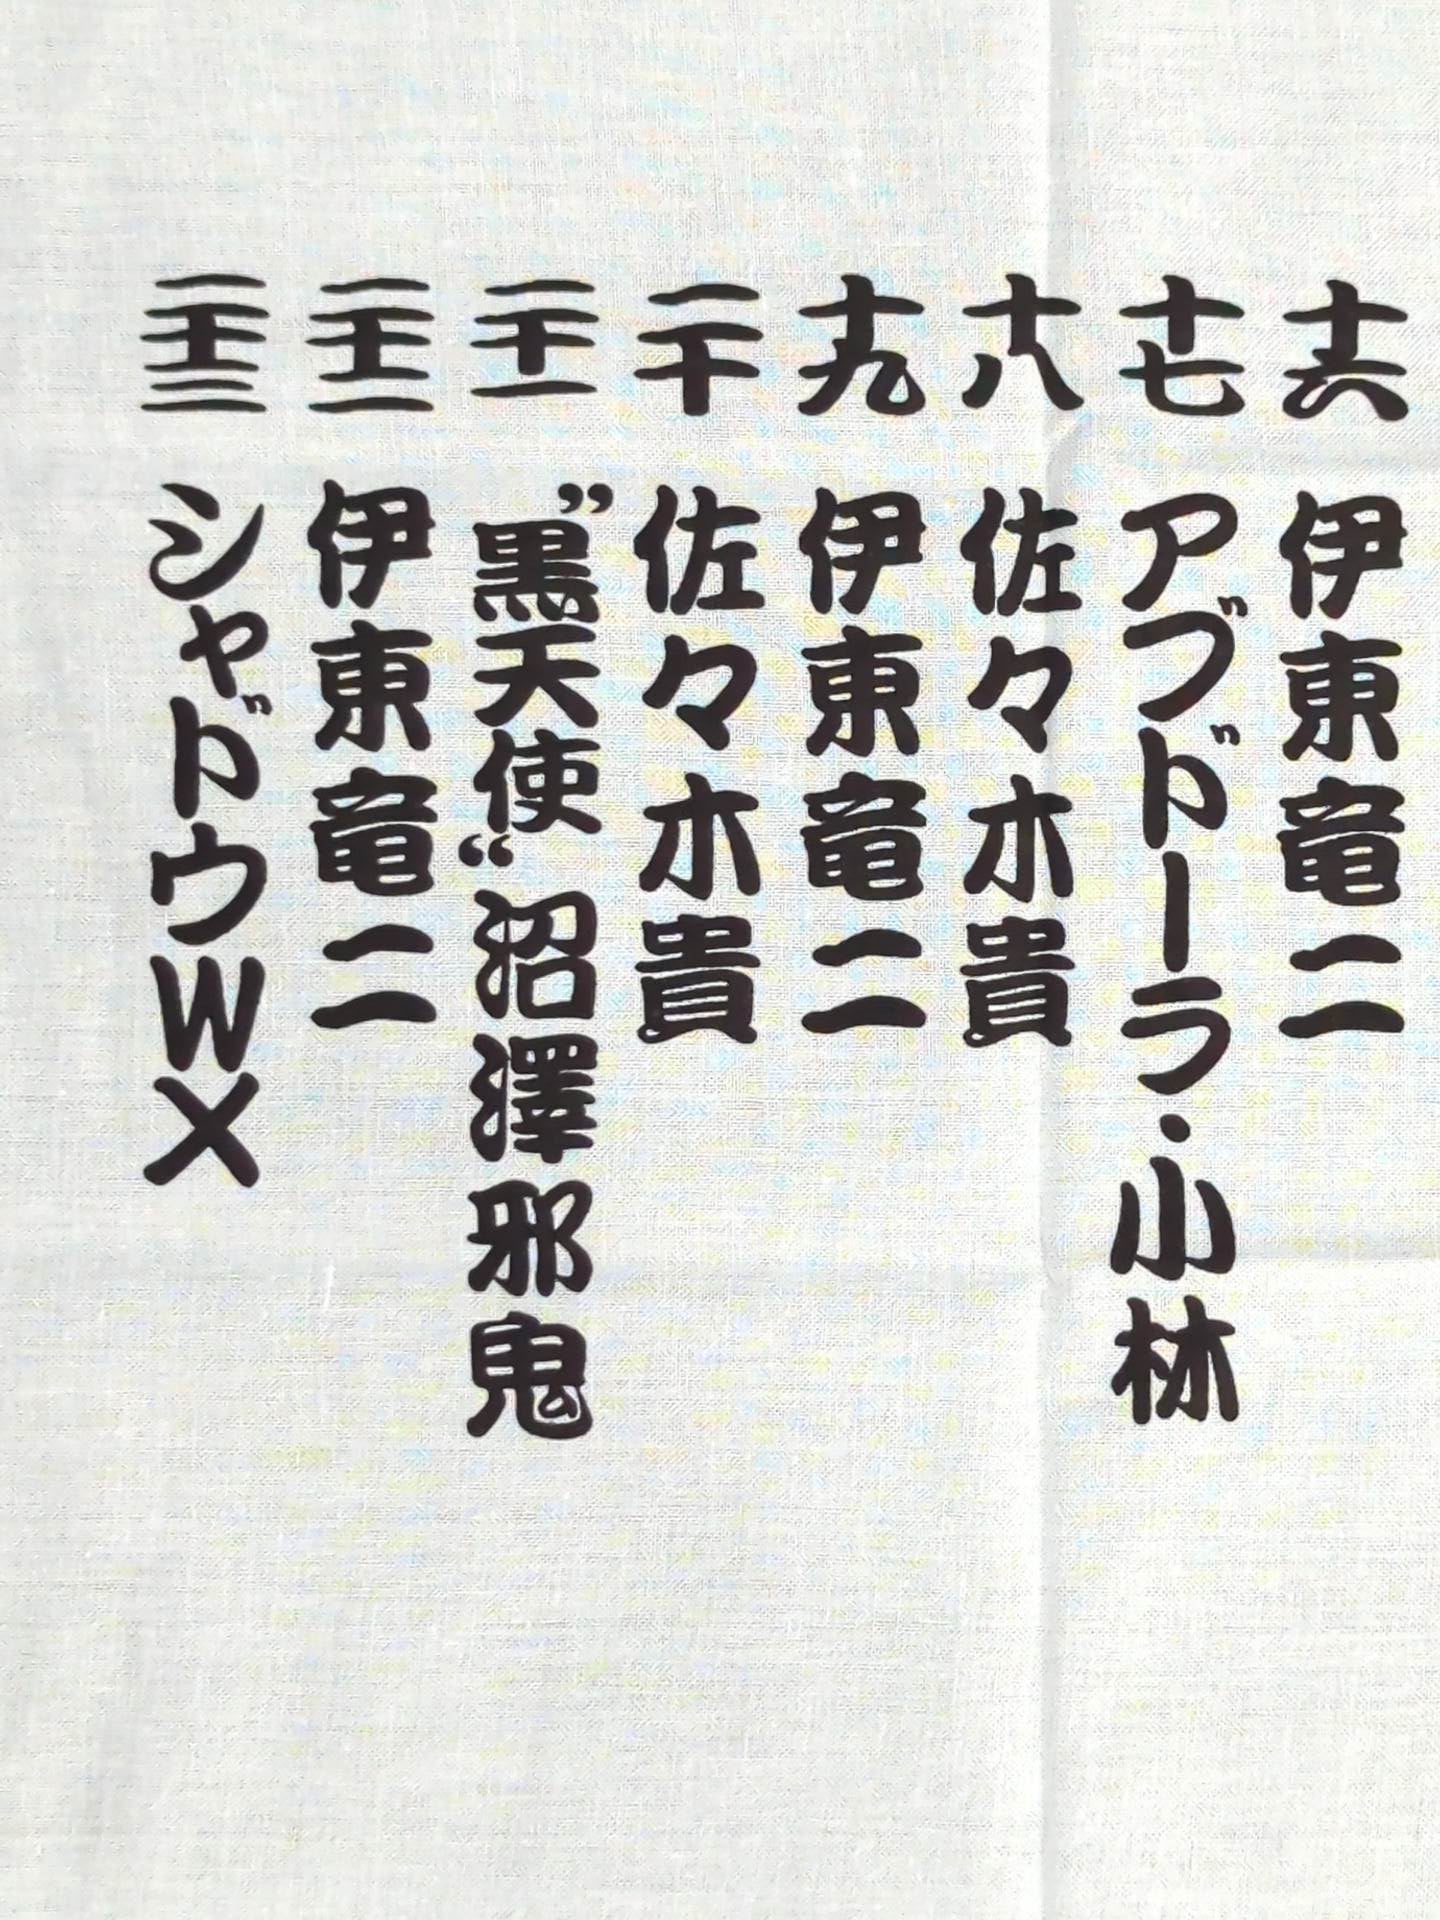 十六 伊東竜二
十七 アブドーラ・小林
十八 佐々木貴
十九 伊東竜二
二十 佐々木貴
二十一 ”黒天使“沼澤邪鬼
二十二 伊東竜二
二十三 シャドウWX